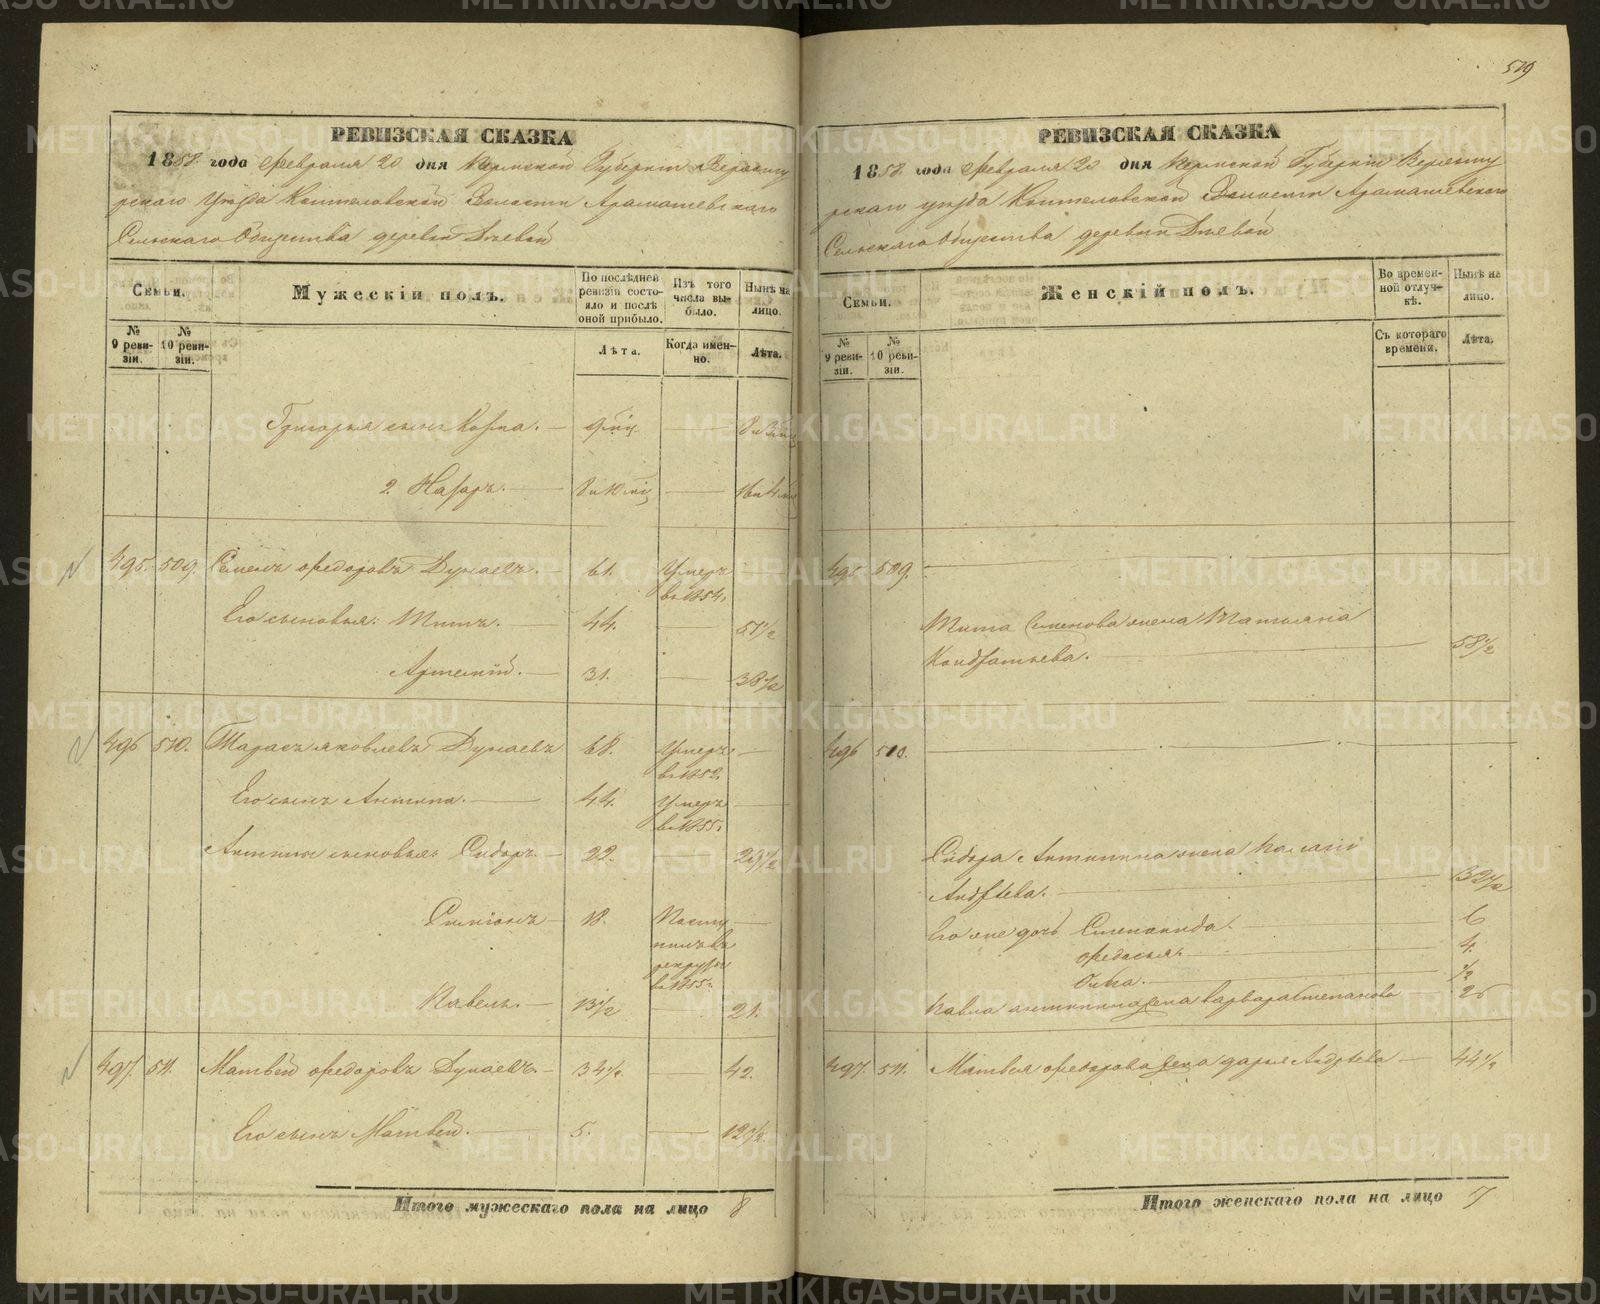 519
РЕВИЗСКАЯ СКАЗКА
1858 года Февраля 20 дня Пермской Губерніи Верхоту
рскаго уѣзда Коптеловской Волости Арамашевскаго
Сельскаго Общества деревни Дѣевой
Семьи.
Мужескій полъ.
По послѣдней ревизіи состояло и послѣ оной прибыло.
Изъ того числа выбыло.
Нынѣ на лицо.
№ 9 ревизіи.
№ 10 ревизіи.
Лѣта.
Когда именно.
Лѣта.
Григорья сынъ Козма. — 9 мѣц. — 8 и 3 мѣц
2. Назаръ. — 8 и 10 мѣц — 16 и 4 мѣц
495. 509. Семенъ Федоровъ Дунаевъ. — 61. Умеръ —
въ 1854.
Его сыновья: Титъ. — 44. — 51 1/2
Артемій. — 31. — 38 1/2
496 510. Тарасъ Яковлевъ Дунаевъ 68. Умеръ —
въ 1852.
Его сынъ Антипа. — 44. Умеръ —
въ 1855.
Антипы сыновья: Сидоръ. — 22. — 29 1/2
Симіонъ — 18. Поступ —
пилъ въ
рекруты
въ 1855.
Павелъ. — 13 1/2 — 21.
497. 511. Матвей Федоровъ Дунаевъ. — 34 1/2 — 42.
Его сынъ Матвей. — 5. — 12 1/2
Итого мужескаго пола на лицо 8
РЕВИЗСКАЯ СКАЗКА
1858 года Февраля 20 дня Пермской Губерніи Верхоту
рскаго уѣзда Коптеловской Волости Арамашевскаго
Сельскаго Общества деревни Дѣевой
Семьи.
Женскій полъ.
Во временной отлучкѣ.
Нынѣ на лицо.
№ 9 ревизіи.
№ 10 ревизіи.
Съ котораго времени.
Лѣта.
495 509. —
Тита Семенова жена Татьяна
Кондратьева. — 58 1/2
496 510. —
Сидора Антипина жена
Андреева. — 32 1/2
Его же дочь Степанида. — 6
Федосья. — 4.
1/2
Павла Антипина жена Варвара Степанова 26
497. 511. Матвея Федорова жена Дарья Андреева — 44 1/2
Итого женскаго пола на лицо 7
METRIKI.GASO-URAL.RU